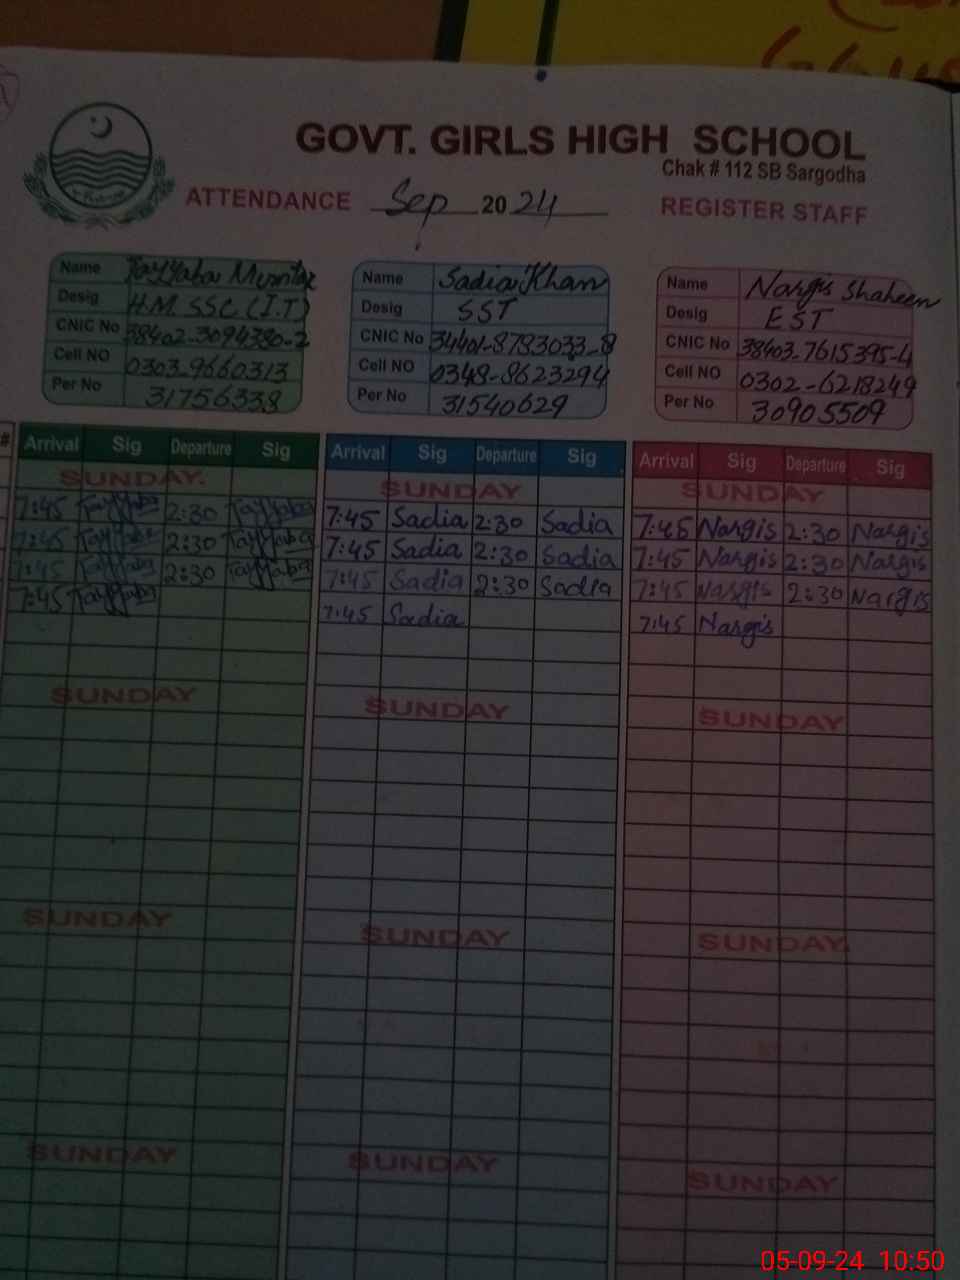 GOVT. GIRLS HIGH SCHOOL
Chak # 112 SB Sargodha
ATTENDANCE Sep 2024 REGISTER STAFF
Name Tayyaba Mumtaz
Desig H.M. SSC (I.T)
CNIC No 38402-3094380-2
Cell NO 0303-9660313
Per No 31756338
Name Sadia Khan
Desig SST
CNIC No 34401-8793033-8
Cell NO 0348-8623294
Per No 31540629
Name Nargis Shaheen
Desig EST
CNIC No 38403-7615395-4
Cell NO 0302-6218249
Per No 30905509
# Arrival Sig Departure Sig Arrival Sig Departure Sig Arrival Sig Departure Sig
SUNDAY. SUNDAY SUNDAY
7:45 Tayyaba 2:30 Tayyaba 7:45 Sadia 2:30 Sadia 7:45 Nargis 2:30 Nargis
7:45 Tayyaba 2:30 Tayyaba 7:45 Sadia 2:30 Sadia 7:45 Nargis 2:30 Nargis
7:45 Tayyaba 2:30 Tayyaba 7:45 Sadia 2:30 Sadia 7:45 Nargis 2:30 Nargis
7:45 Tayyaba 7:45 Sadia 7:45 Nargis
SUNDAY SUNDAY SUNDAY
SUNDAY SUNDAY SUNDAY
SUNDAY SUNDAY SUNDAY
05-09-24 10:50